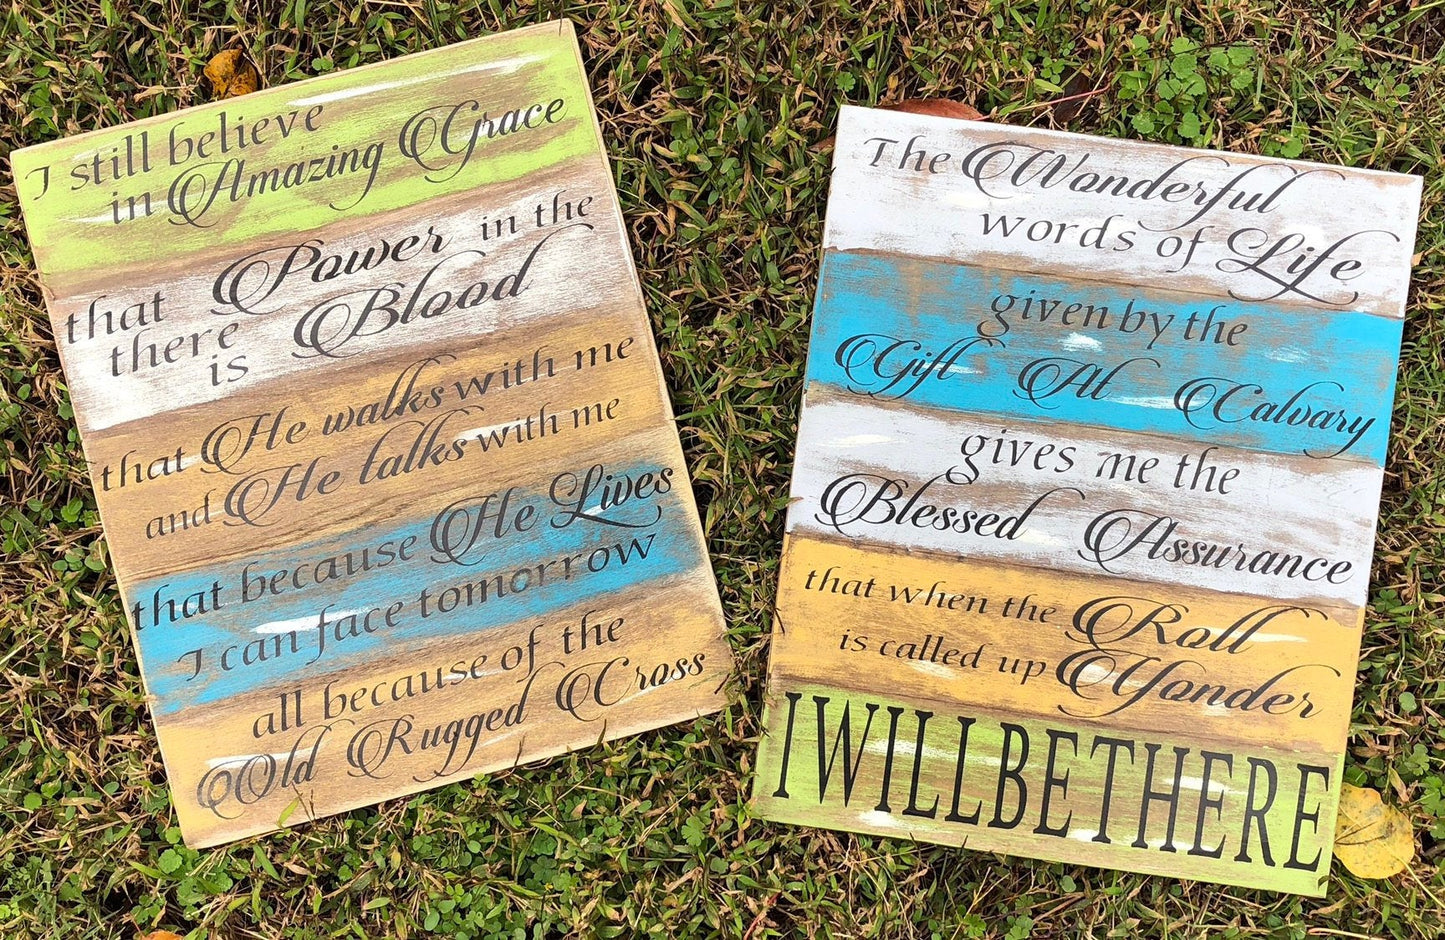 I still believe
in Amazing Grace
that Power in the
there Blood
is
that He walks with me
and He talks with me
that because He Lives
I can face tomorrow
all because of the
Old Rugged Cross
The Wonderful
words of Life
given by the
Gift At Calvary
gives me the
Blessed Assurance
that when the Roll
is called up Yonder
I WILL BE THERE